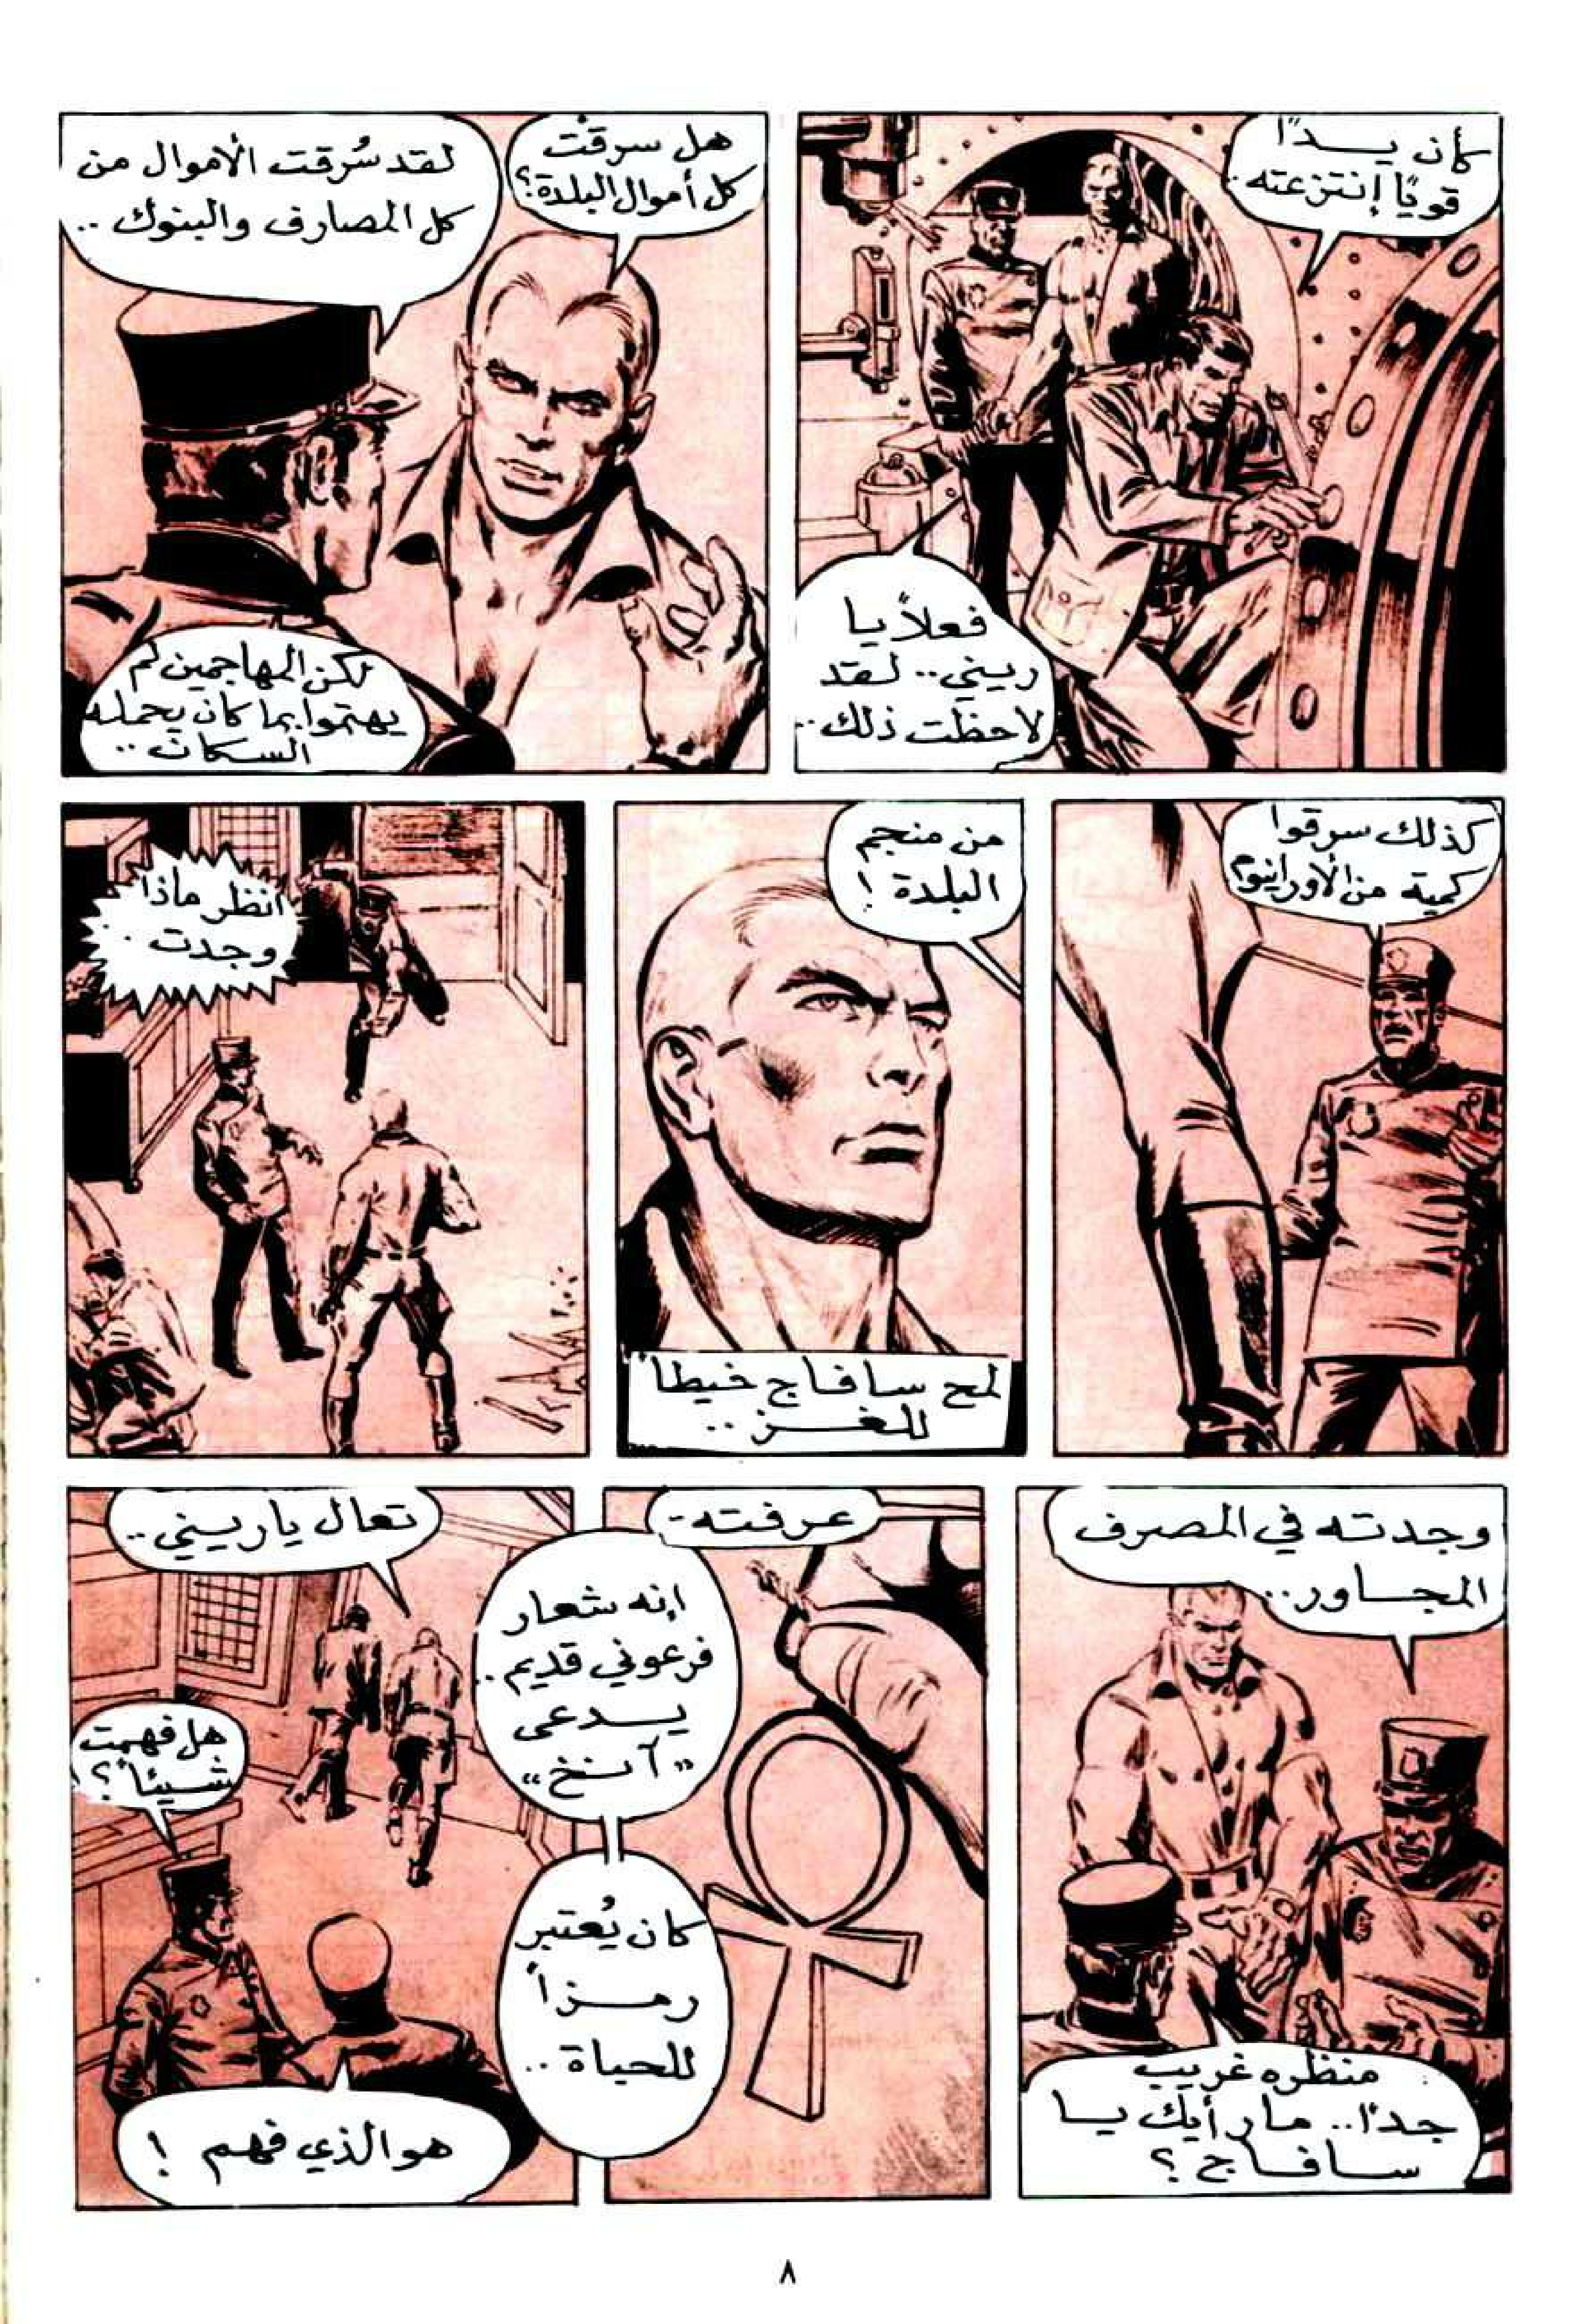 كأن يداً
قوياً إنتزعته..
فعلاً يا
ريني.. لقد
لاحظت ذلك..
هل سرقت
كل أموال البلدة؟
لقد سُرقت الأموال من
كل المصارف والبنوك ..
لكن المهاجمين لم
يهتموا بما كان يحمله
السكان ..
كذلك سرقوا
كمية من الأورانيوم
من منجم
البلدة !
لمح سافاج خيطاً
للغز ..
انظر ماذا
وجدت ..
وجدته في المصرف
المجاور..
منظره غريب
جداً.. ما رأيك يا
سافاج ؟
عرفته -
إنه شعار
فرعوني قديم ..
يدعى
"آنخ"
كان يُعتبر
رمزاً
للحياة ..
تعال يا ريني ..
هل فهمت
شيئاً ؟
هو الذي فهم !
٨